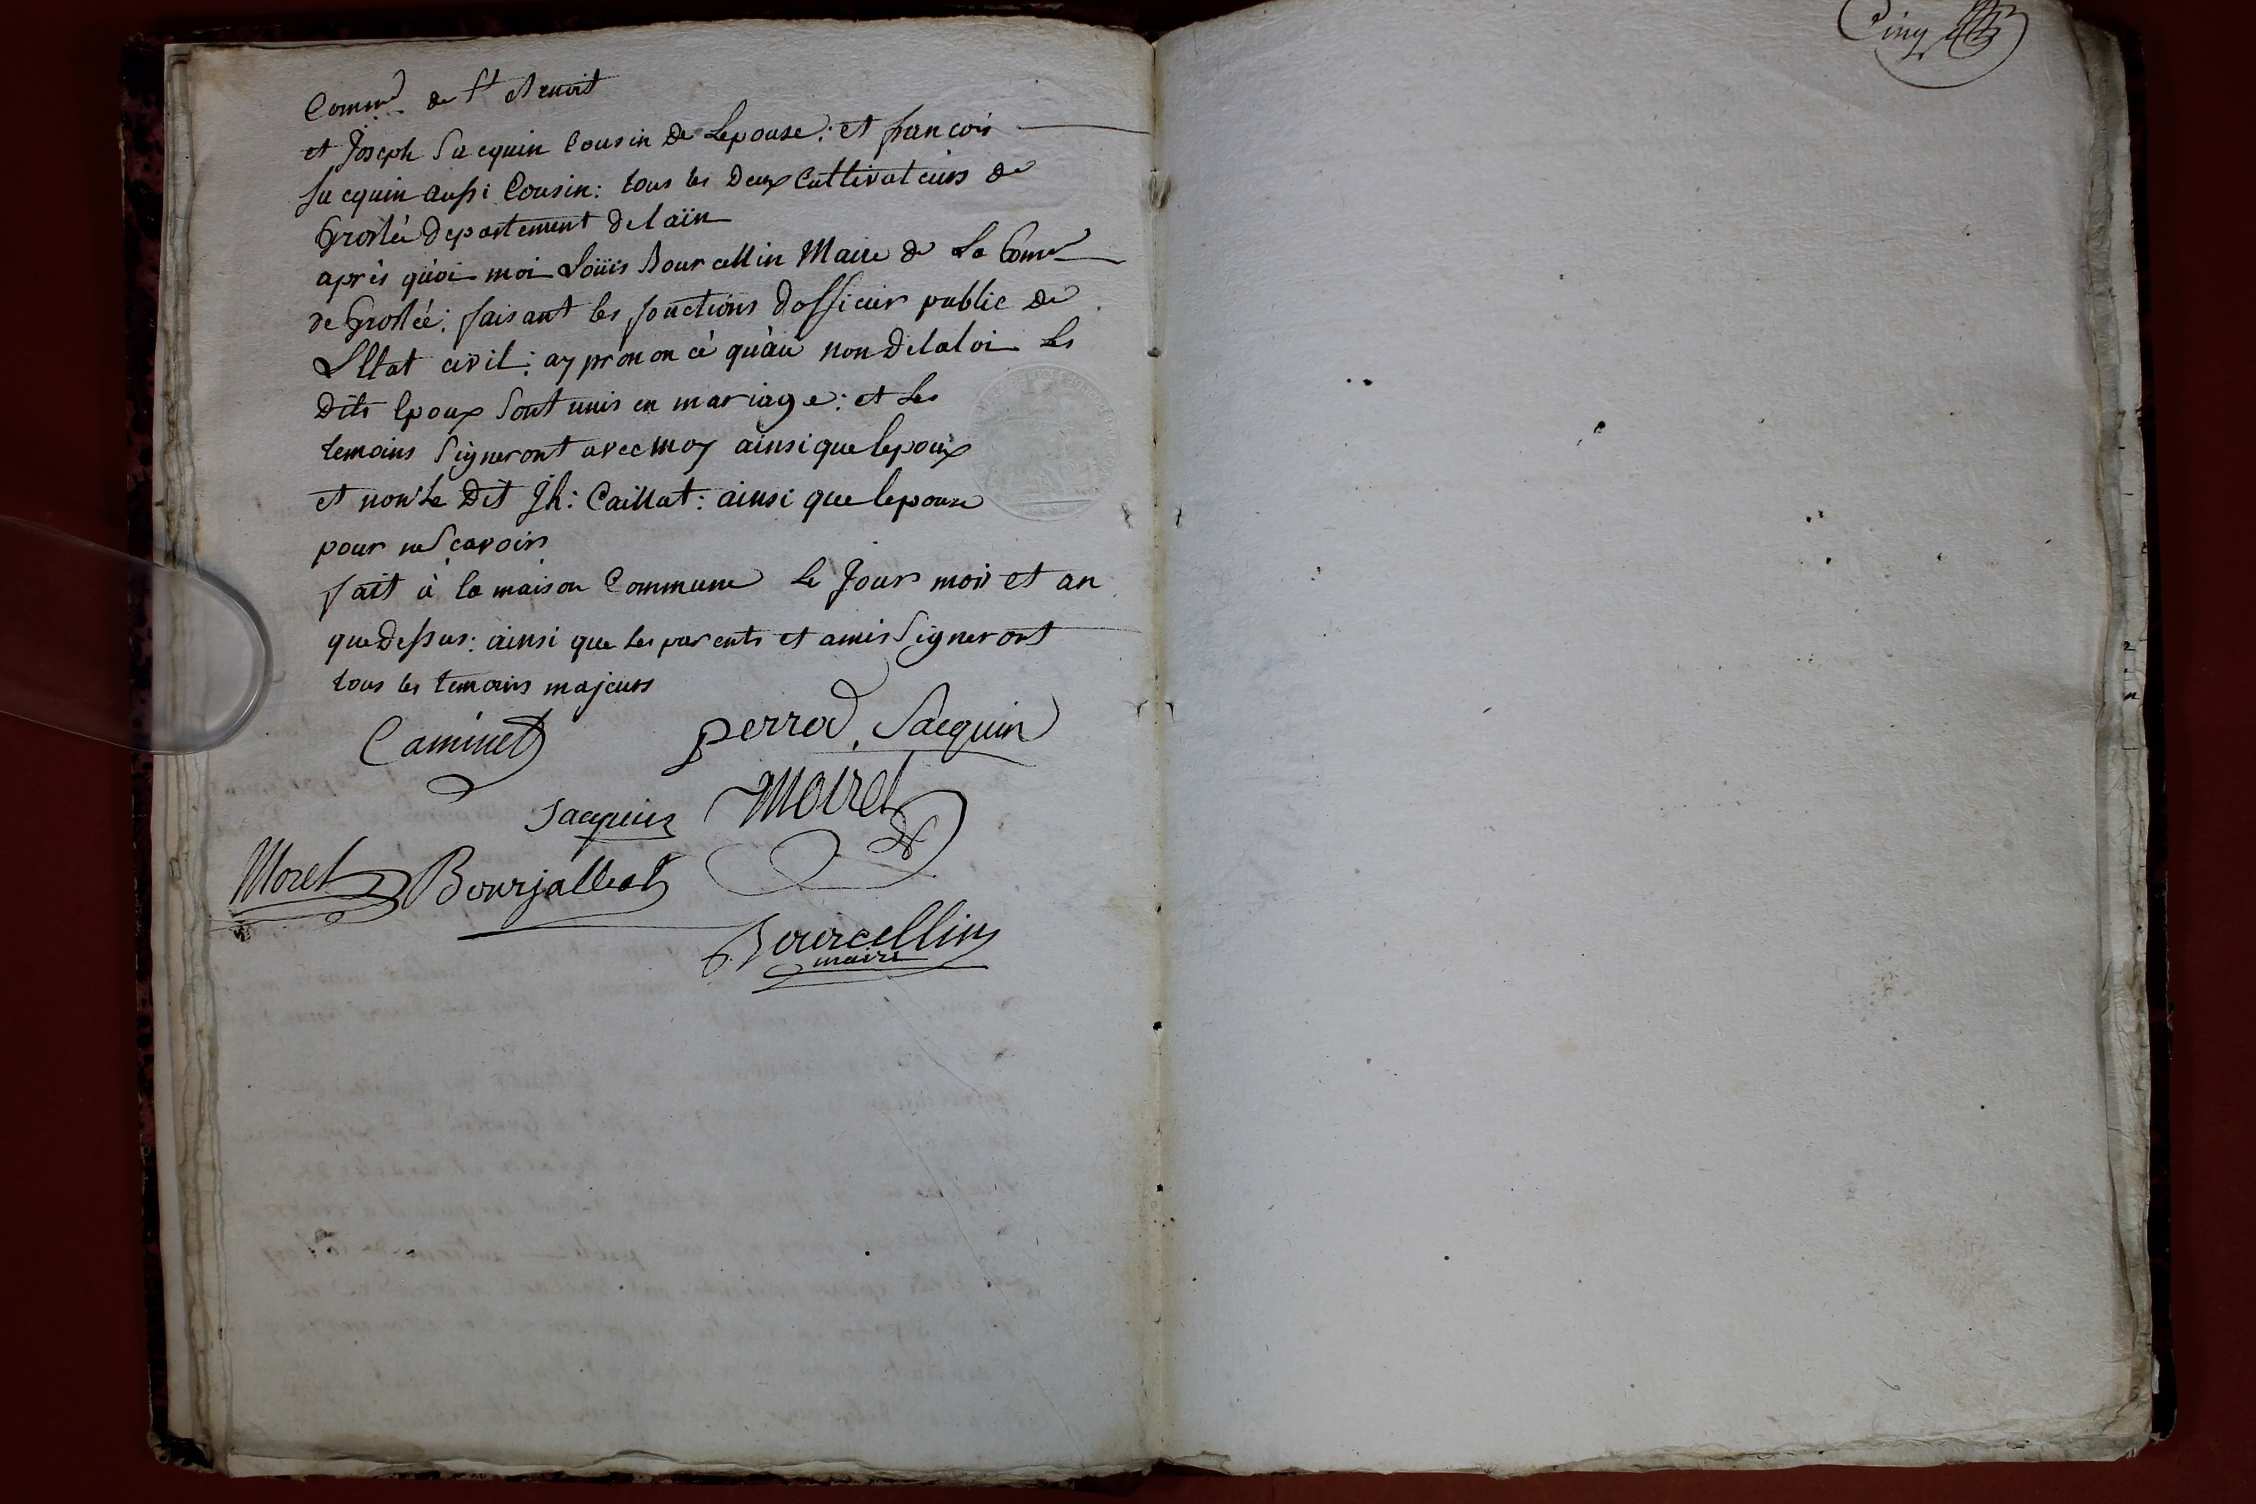 Comm.e de St Benoit
et Joseph Sacquin Cousin de Lepouse: et francois
Sacquin aussi Cousin: tous les deux Cultivateurs de
Groslée departement delaïn
après quoi moi Loüis Bourcellin Maire de La Com.e
de Groslée: faisant les fonctions dofficier public de
LEtat civil: ay prononcé qu'au non delaloi les
Dits Epoux Sont unis en mariage: et Les
temoins Signeront avec moy ainsi que lepoux
et non Le Dit Jh: Caillat: ainsi que lepouse
pour ne Scavoir
fait à la maison Commune Le Jour mois et an
que Dessus: ainsi que les parents et amis Signeront
tous les temoins majeurs
Caminet perrod Sacquin
Jacquin Moiret
Moret Bourjaillat
Bourcellin
maire
Cinq